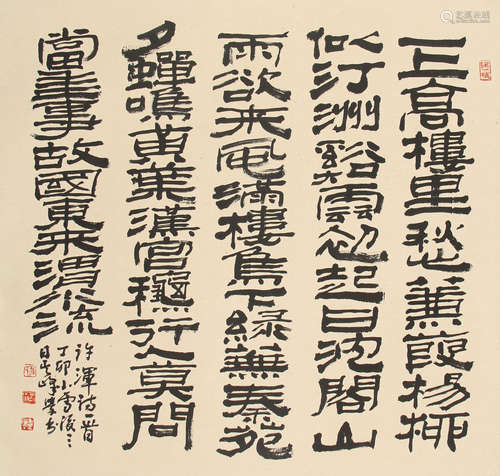 一上高樓里愁蒹葭楊柳
似汀洲谿雲初起日沈閣山
雨欲来風滿樓鳥下綠蕪秦苑
夕蟬鳴黄葉漢宮龝行人莫問
當年事故國東来渭水流
許渾詩一首
丁卯小雪後二
日